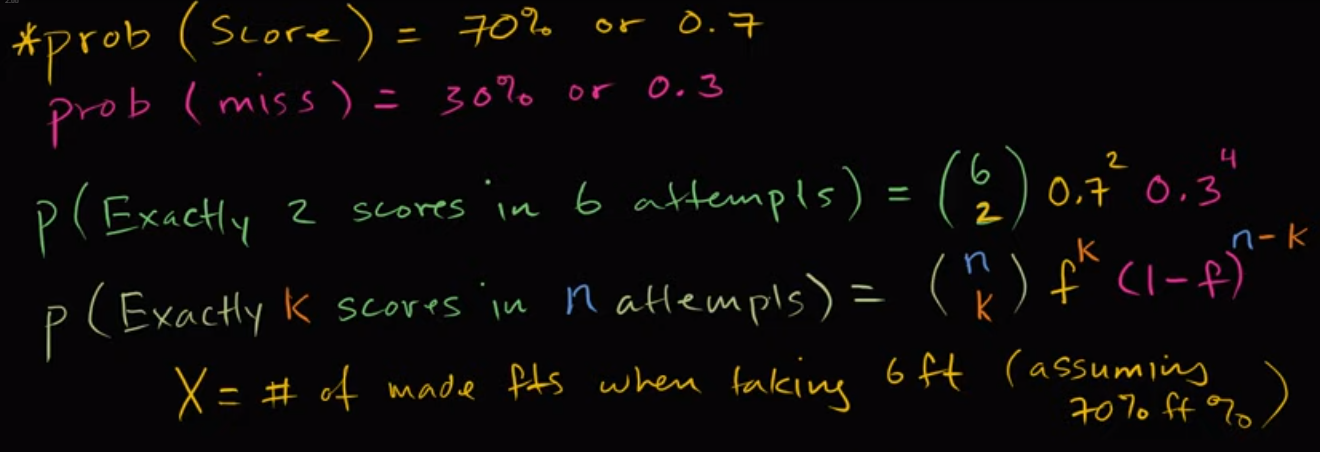 *prob (Score) = 70% or 0.7
prob (miss) = 30% or 0.3
P(Exactly 2 scores in 6 attempts) = (6 2) 0.7² 0.3⁴
P(Exactly k scores in n attempts) = (n k) f^k (1-f)^n-k
X = # of made fts when taking 6 ft (assuming 70% ft %)